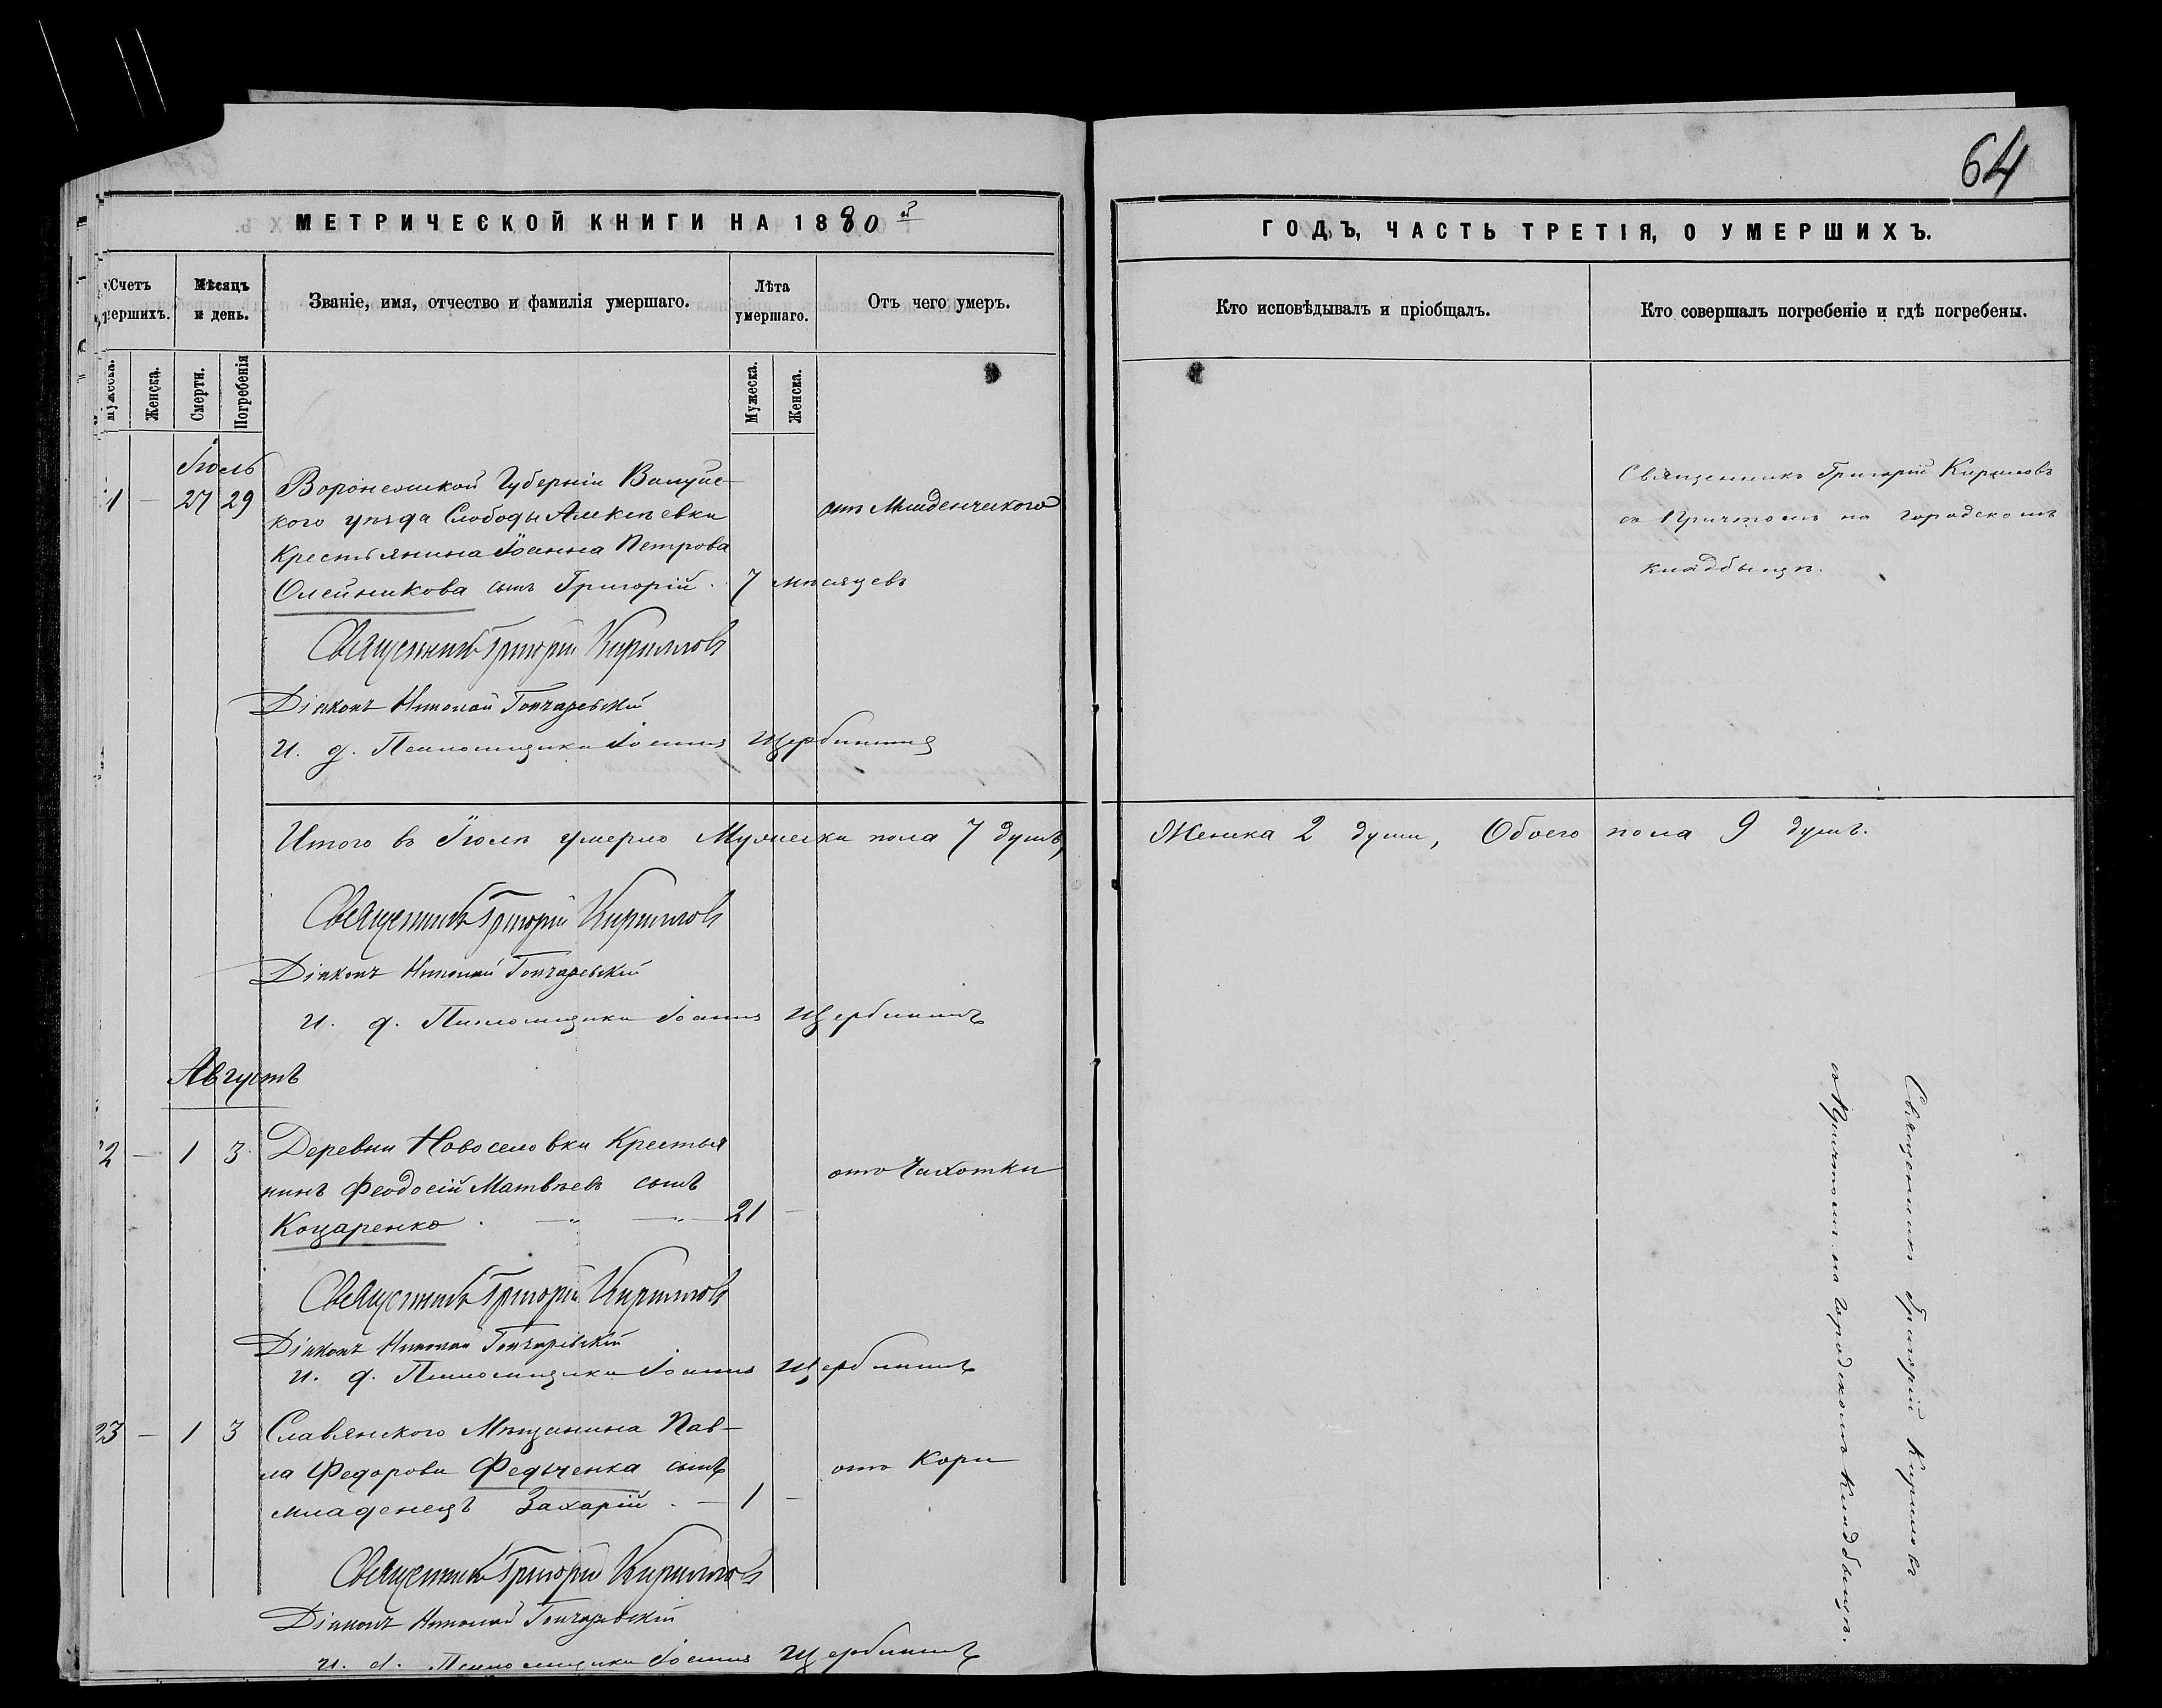 64
МЕТРИЧЕСКОЙ КНИГИ НА 1880й
ГОДЪ, ЧАСТЬ ТРЕТІЯ, О УМЕРШИХЪ.
Счетъ
умершихъ.
Мѣсяцъ
и день.
Званіе, имя, отчество и фамилія умершаго.
Лѣта
умершаго.
Отъ чего умеръ.
Кто исповѣдывалъ и пріобщалъ.
Кто совершалъ погребеніе и гдѣ погребены.
Мужеска.
Женска.
Смерти.
Погребенія
Мужеска.
Женска.
Іюль
1 — 27 29 Воронежской Губерніи Валуйс-
кого уѣзда Слободы Алексѣевки
Крестьянина Іоанна Петрова
Олейникова сынъ Григорій. 7 мѣсяцевъ
отъ Младенческого
Священникъ Григорій Кириловъ
съ Причтомъ на городскомъ
кладбыщѣ.
Священникъ Григорій Кирилловъ
Діаконъ Николай Гончаревскій
И. д. Псаломщика Іоаннъ Щербининъ
Итого въ Іюлѣ умерло Мужеска пола 7 душъ, Женска 2 души, Обоего пола 9 душъ.
Священникъ Григорій Кирилловъ
Діаконъ Николай Гончаревскій
И. д. Псаломщика Іоаннъ Щербининъ
Августъ
2 — 1 3 Деревни Новоселовки Крестья
нинъ Феодосій Матвѣевъ сынъ
Коцаренко. — " — " — 21 —
отъ Чахотки
Священникъ Григорій Кирилловъ
Діаконъ Николай Гончаревскій
И. д. Псаломщика Іоаннъ Щербининъ
23 — 1 3 Славянского Мѣщанина Пав-
ла Федорова Федченка сынъ
младенецъ Захарій. — 1 —
отъ Кори
Священникъ Григорій Кириловъ
съ Причтомъ на Городскомъ Кладбыщѣ.
Священникъ Григорій Кирилловъ
Діаконъ Николай Гончаревскій
И. д. Псаломщика Іоаннъ Щербининъ